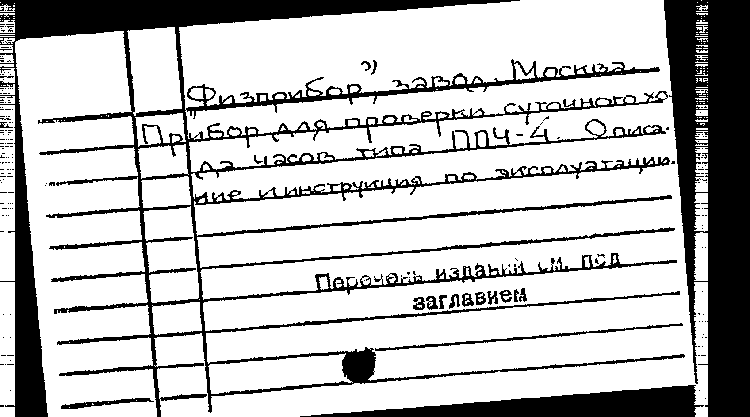 "Физприбор"³⁾, завод. Москва.
Прибор для проверки суточного хо-
да часов типа ППЧ-4. Описа-
ние и инструкция по эксплуатации.
Перечень изданий см. под
заглавием